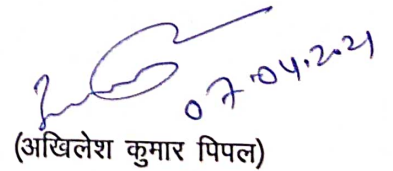 07.04.2021
(अखिलेश कुमार पिपल)